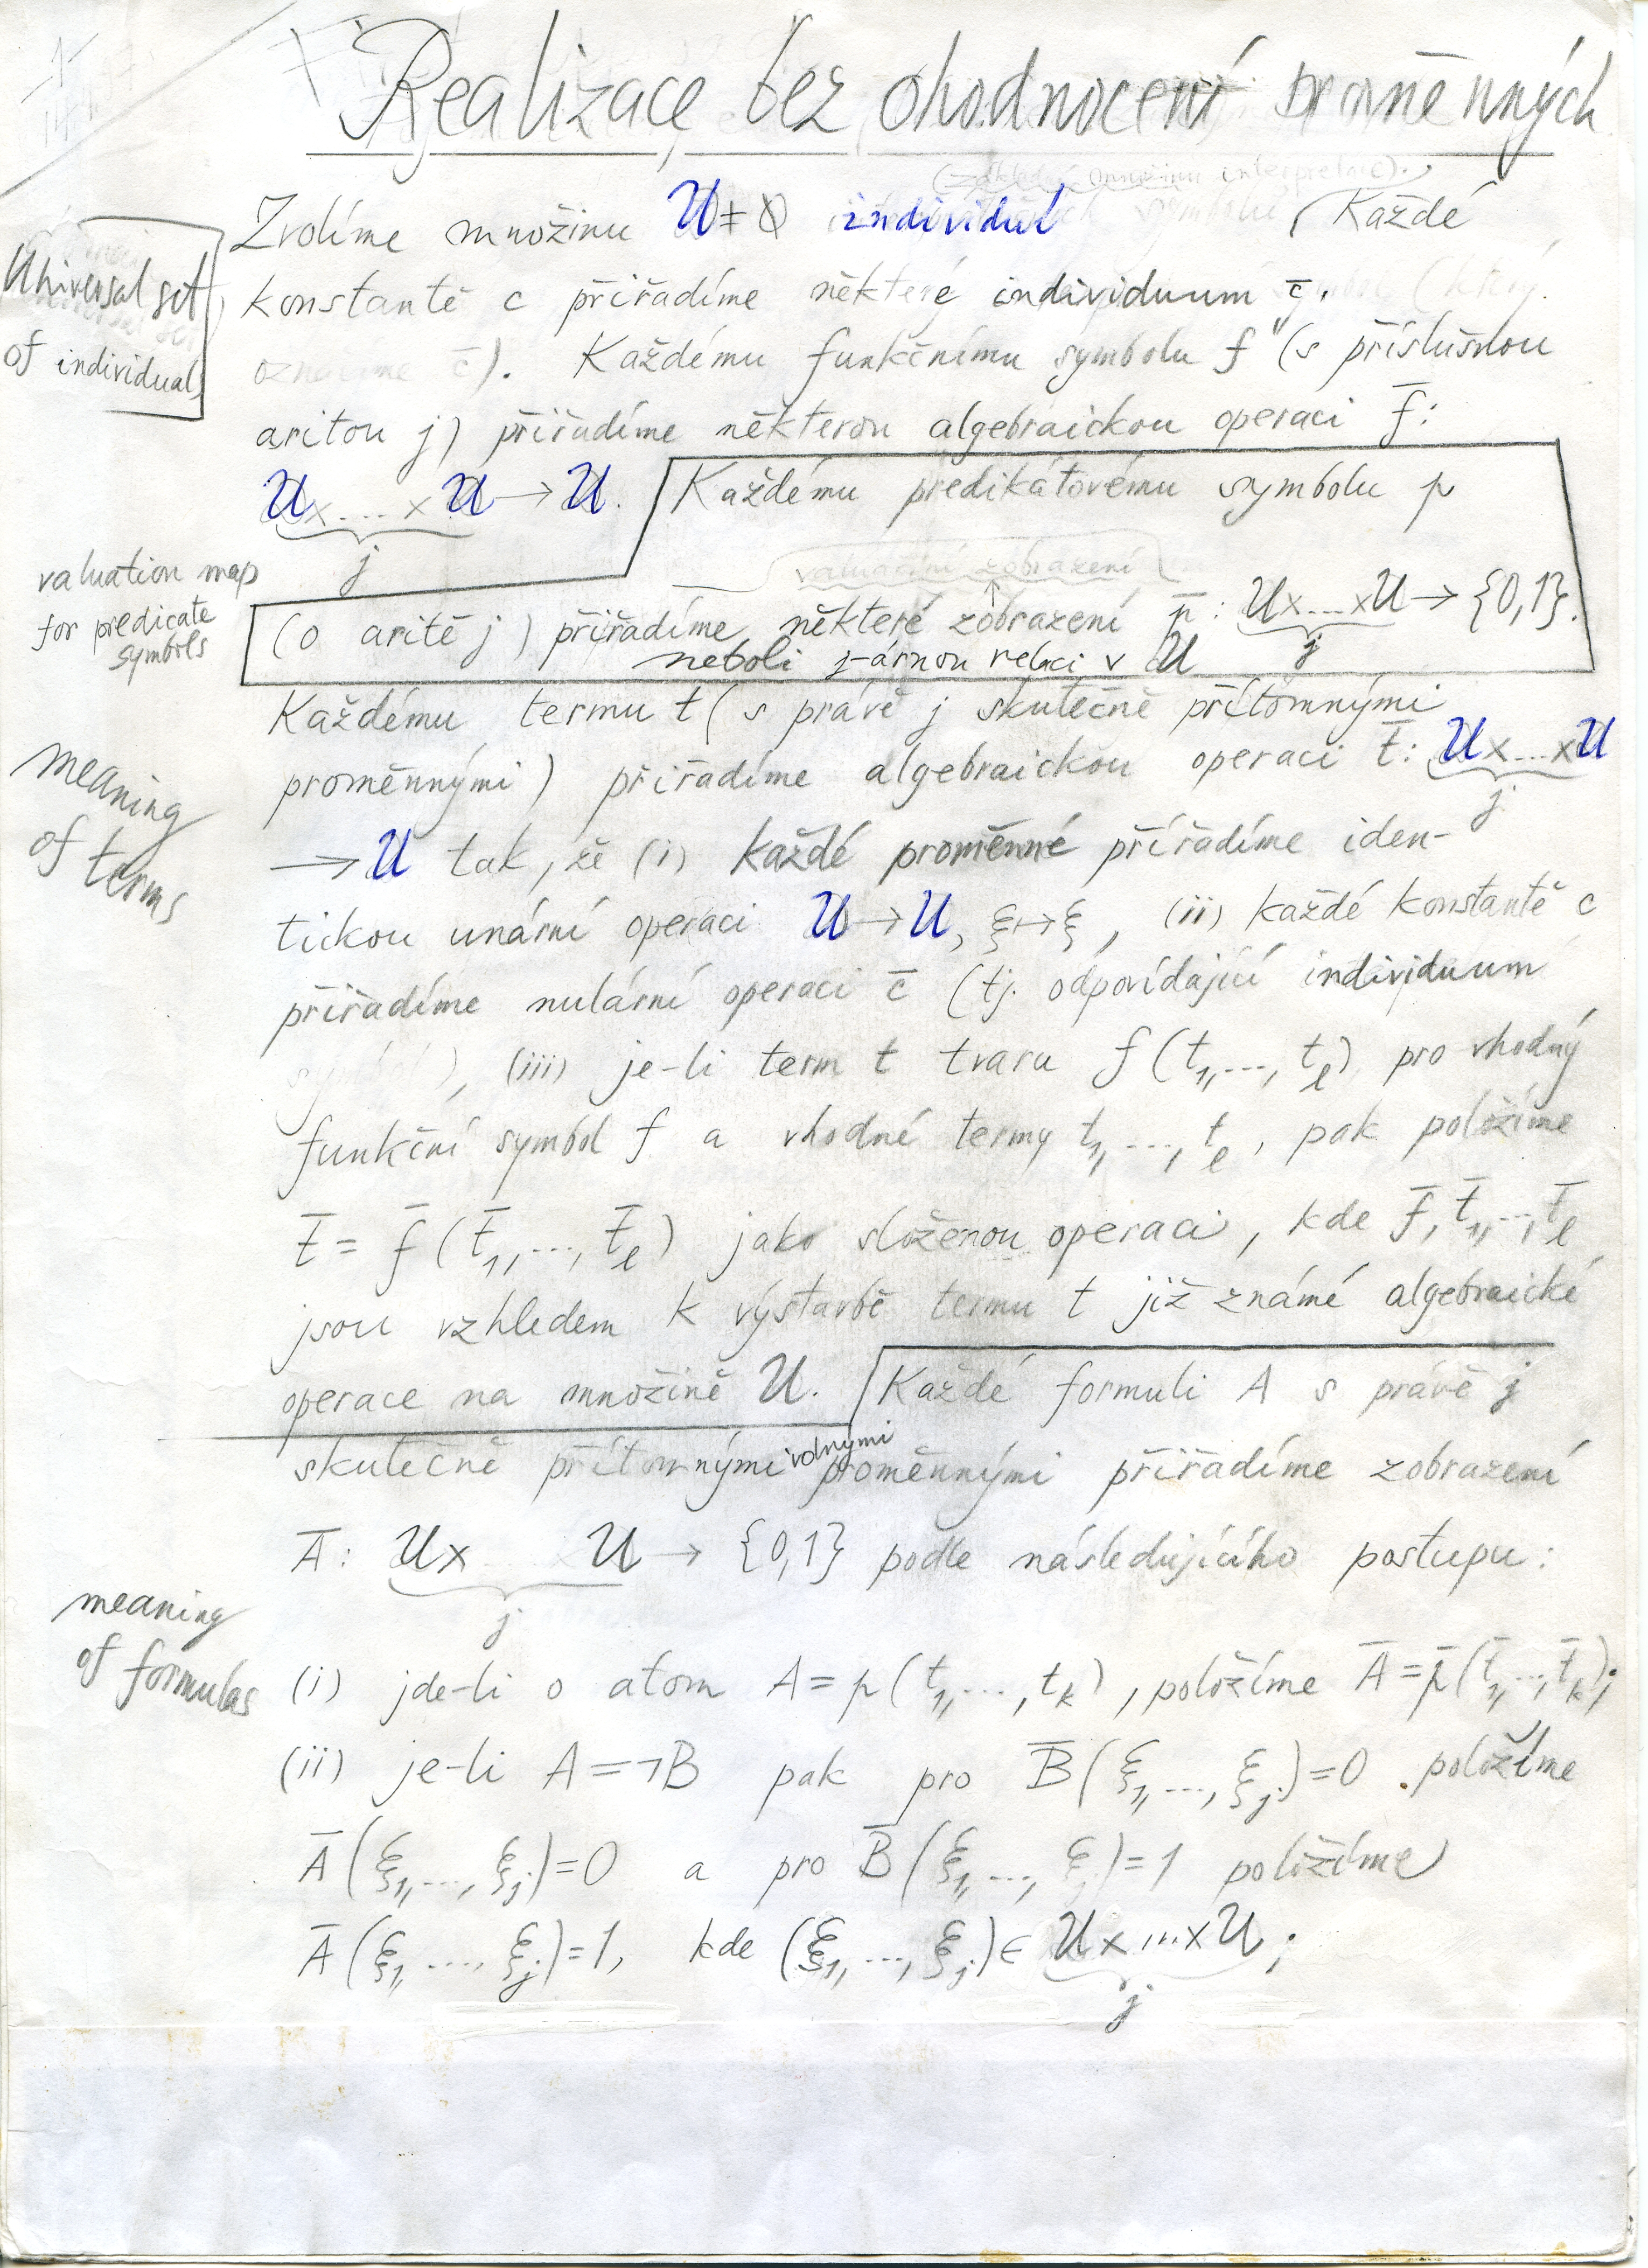 Realizace bez ohodnocení proměnných
(základní množinu interpretace).
Zvolíme množinu U ≠ ∅ individuí Každé
Universal set
of individuals
konstantě c přiřadíme některé individuum c̄.
označíme c̄). Každému funkčnímu symbolu f (s příslušnou
aritou j) přiřadíme některou algebraickou operaci f̄:
U×...×U → U. Každému predikátovému symbolu p
j
valuační zobrazení
valuation map
for predicate
symbols
(o aritě j) přiřadíme některé zobrazení p̄: U×...×U → {0,1}.
j
neboli j-árnou relaci v U
Každému termu t (s právě j skutečně přítomnými
proměnnými) přiřadíme algebraickou operaci t̄: U×...×U
j
meaning
of terms
→ U tak, že (i) každé proměnné přiřadíme iden-
tickou unární operaci U → U, ξ ↦ ξ, (ii) každé konstantě c
přiřadíme nulární operaci c̄ (tj. odpovídající individuum
), (iii) je-li term t tvaru f(t₁,...,tₗ) pro vhodný
funkční symbol f a vhodné termy t₁,...,tₗ, pak položíme
t̄ = f̄(t̄₁,...,t̄ₗ) jako složenou operaci, kde f̄, t̄₁,...,t̄ₗ
jsou vzhledem k výstavbě termu t již známé algebraické
operace na množině U. Každé formuli A s právě j
skutečně přítomnými volnými proměnnými přiřadíme zobrazení
Ā: U× U → {0,1} podle následujícího postupu:
j
meaning
of formulas
(i) jde-li o atom A = p(t₁,...,tₖ), položíme Ā = p̄(t̄₁,...,t̄ₖ);
(ii) je-li A = ¬B pak pro B̄(ξ₁,...,ξⱼ)=0 položíme
Ā(ξ₁,...,ξⱼ)=0 a pro B̄(ξ₁,...,ξⱼ)=1 položíme
Ā(ξ₁,...,ξⱼ)=1, kde (ξ₁,...,ξⱼ) ∈ U×...×U;
j